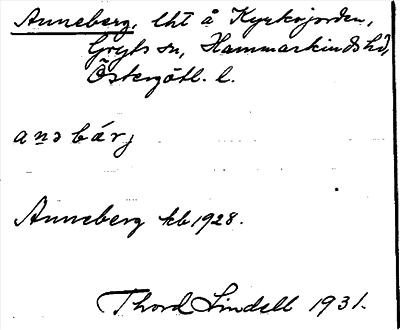 Anneberg. lht å Kyrkojorden,
Gryts sn, Hammarkinds hd,
Östergötl. l.
anəbárj
Anneberg kb 1928.
Thord Lindell 1931.